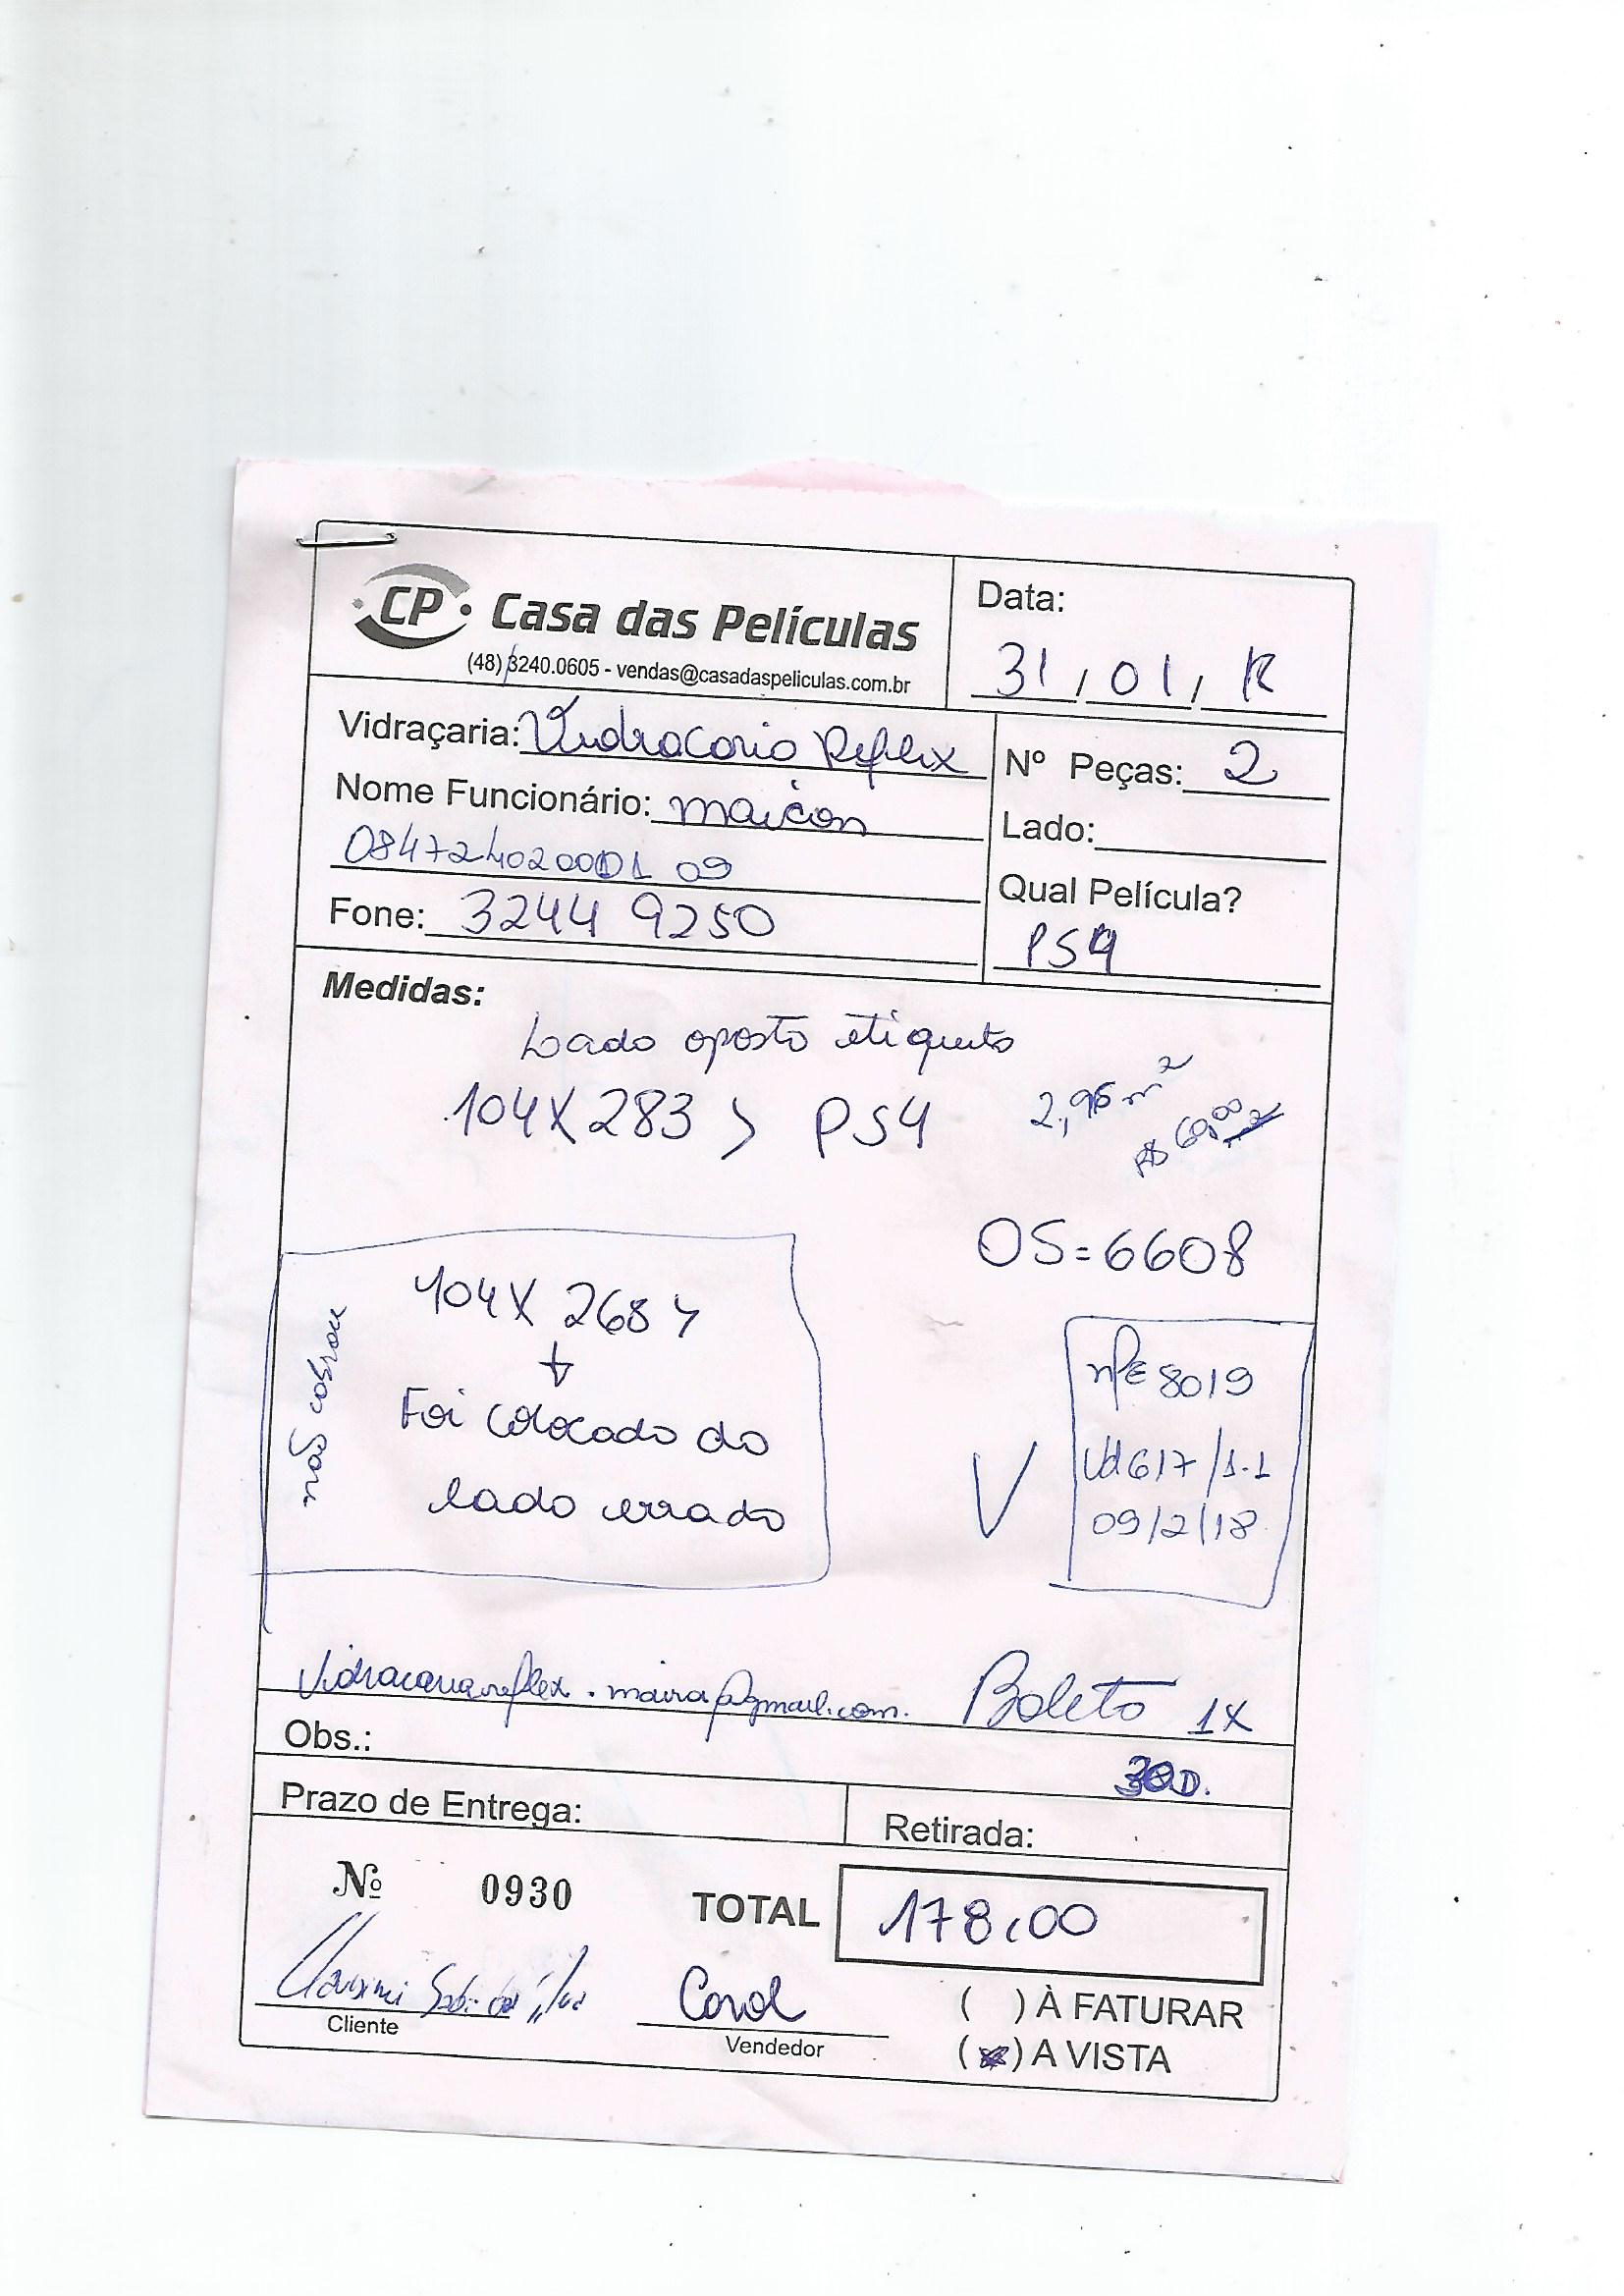 CP Casa das Películas
(48) 3240.0605 - vendas@casadaspeliculas.com.br
Data:
31 / 01 / 18
Vidraçaria: Vidracaria Reflex
Nome Funcionário: maicon
08472402000101 09
Fone: 3244 9250
Nº Peças: 2
Lado:
Qual Película?
PS4
Medidas:
Lado oposto etiqueta
104X283 > PS4
2,96 m²
R$ 60,00
OS=6608
não cobrou
104X268
Foi colocado do
lado errado
nfe 8019
Vd617/1.1
09/2/18
vidracariareflex.maira@gmail.com.
Boleto 1X
30D.
Obs.:
Prazo de Entrega:
Retirada:
Nº 0930
TOTAL 178,00
Cliente
Carol
Vendedor
( ) À FATURAR
(x) A VISTA